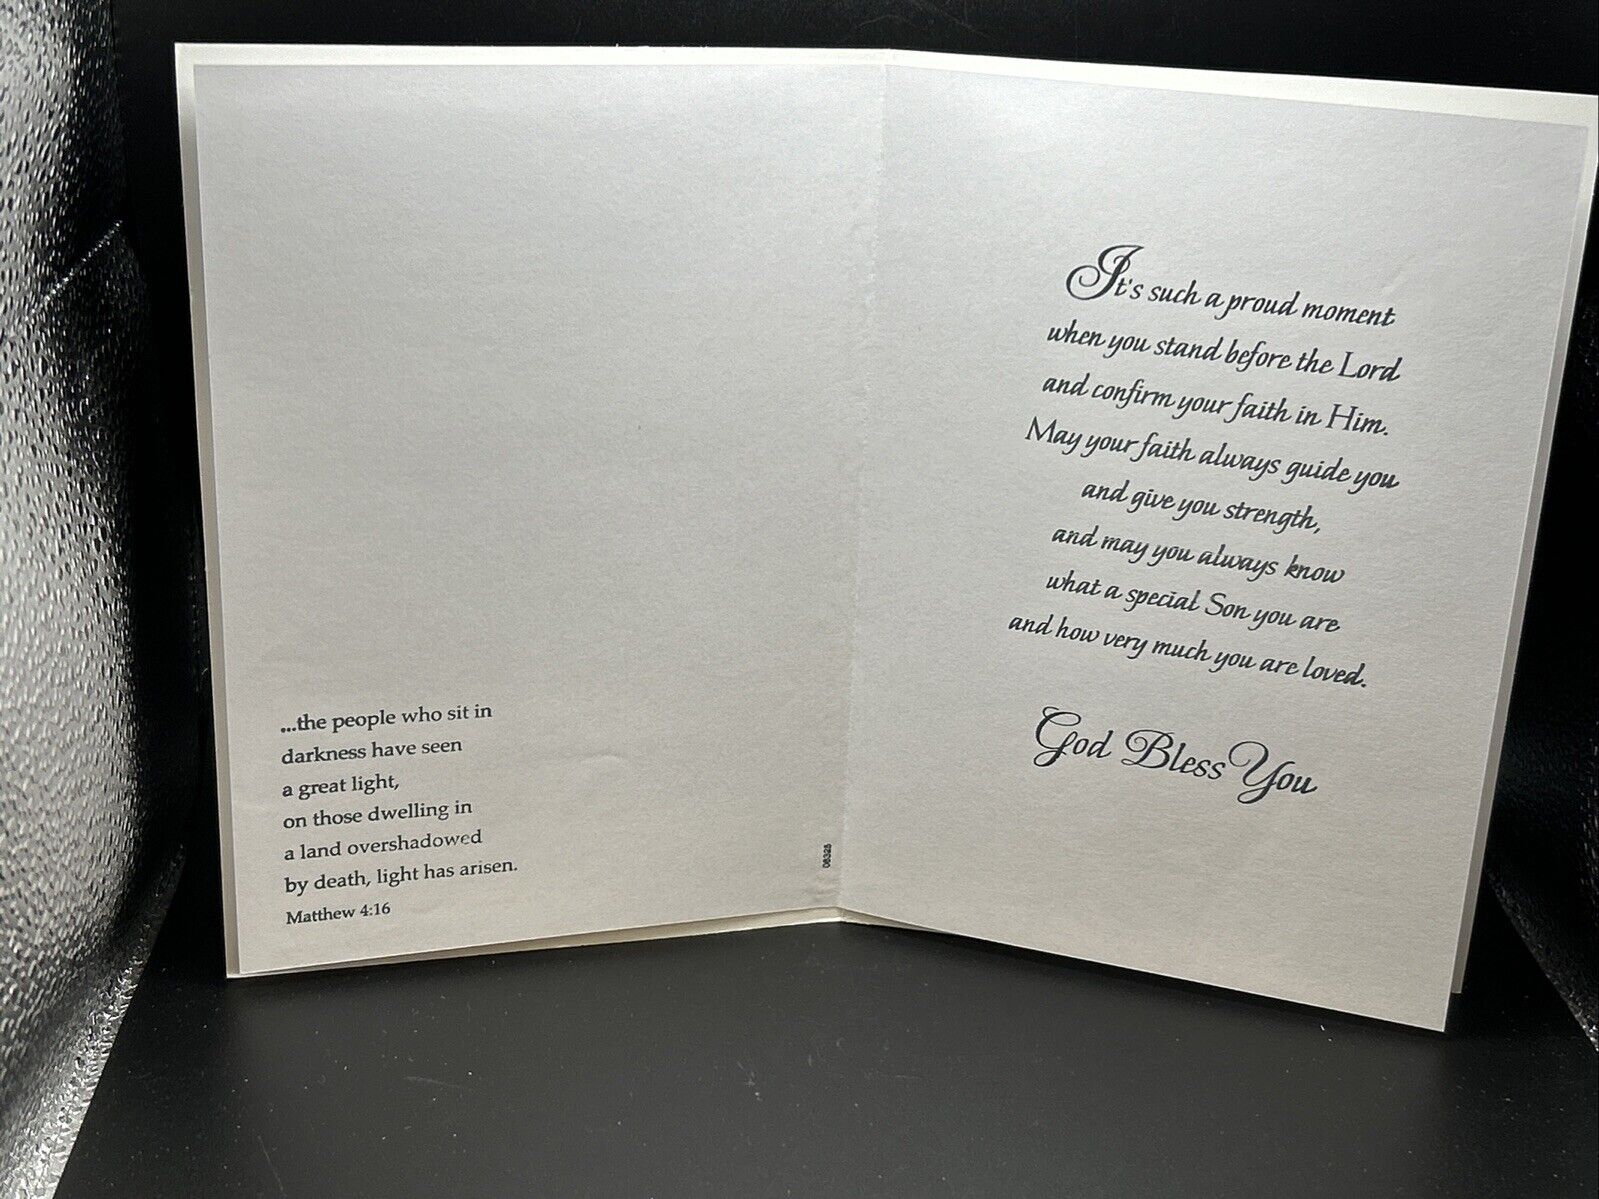 ...the people who sit in
darkness have seen
a great light,
on those dwelling in
a land overshadowed
by death, light has arisen.
Matthew 4:16
06325
It's such a proud moment
when you stand before the Lord
and confirm your faith in Him.
May your faith always guide you
and give you strength,
and may you always know
what a special Son you are
and how very much you are loved.
God Bless You